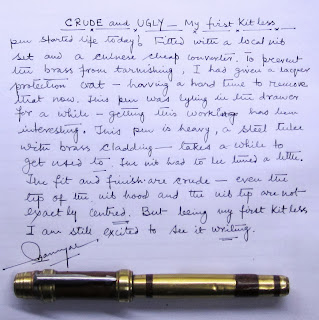 CRUDE and UGLY - My first Kitless
pen started life today! Fitted with a local nib
set and a chinese cheap converter. To prevent
the brass from tarnishing, I had given a lacquer
protection coat - having a hard time to remove
that now. This pen was lying in the drawer
for a while - getting this working has been
interesting. This pen is heavy, a steel tube
with brass cladding - takes a while to
get used to. The nib had to be tuned a little.
The fit and finish are crude - even the
tip of the nib hood and the nib tip are not
exactly centred. But being my first kitless
I am still excited to see it writing.